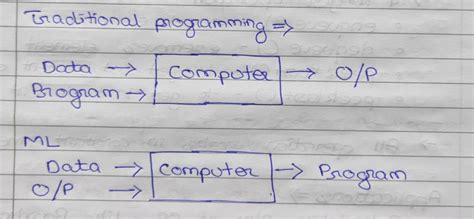 Traditional programming ⇒
Data → Computer → O/P
Program →
ML
Data → Computer → Program
O/P →